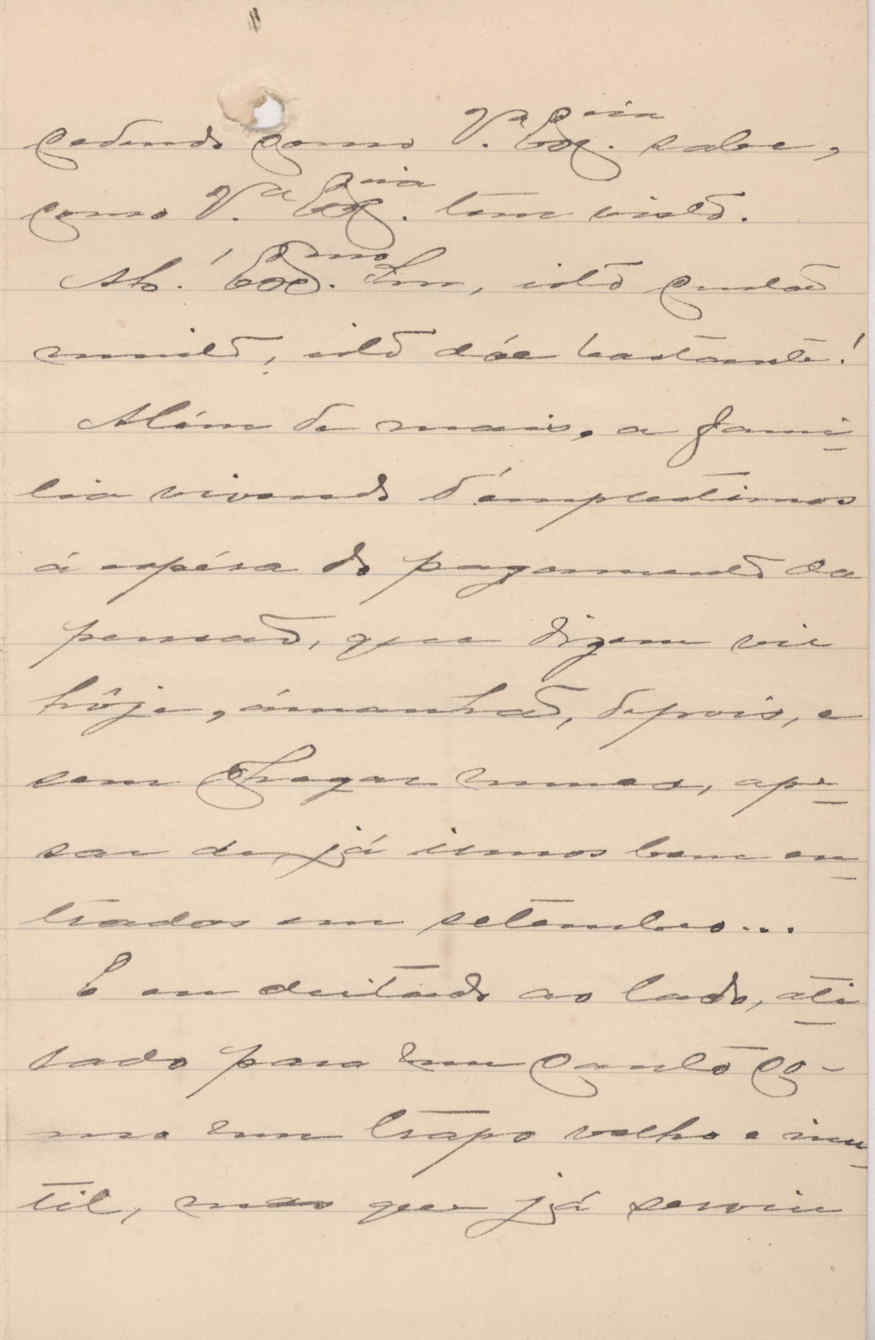 cedendo como V.ª Ex.cia sabe,
como V.ª Ex.cia tem visto.
Ah! Ex.mo Snr, isto custa
muito, isto dóe bastante!
Além de mais, a fami-
lia vivendo d'emprestimos
á espéra do pagamento da
pensão, que dizem vir
hôje, ámanhã, depois, e
sem chegar nunca, ape-
sar de já irmos bem en-
trados em setembro...
E eu deitado ao lado, ati-
rado para um canto co-
mo um trapo velho e inu-
til, mas que já serviu